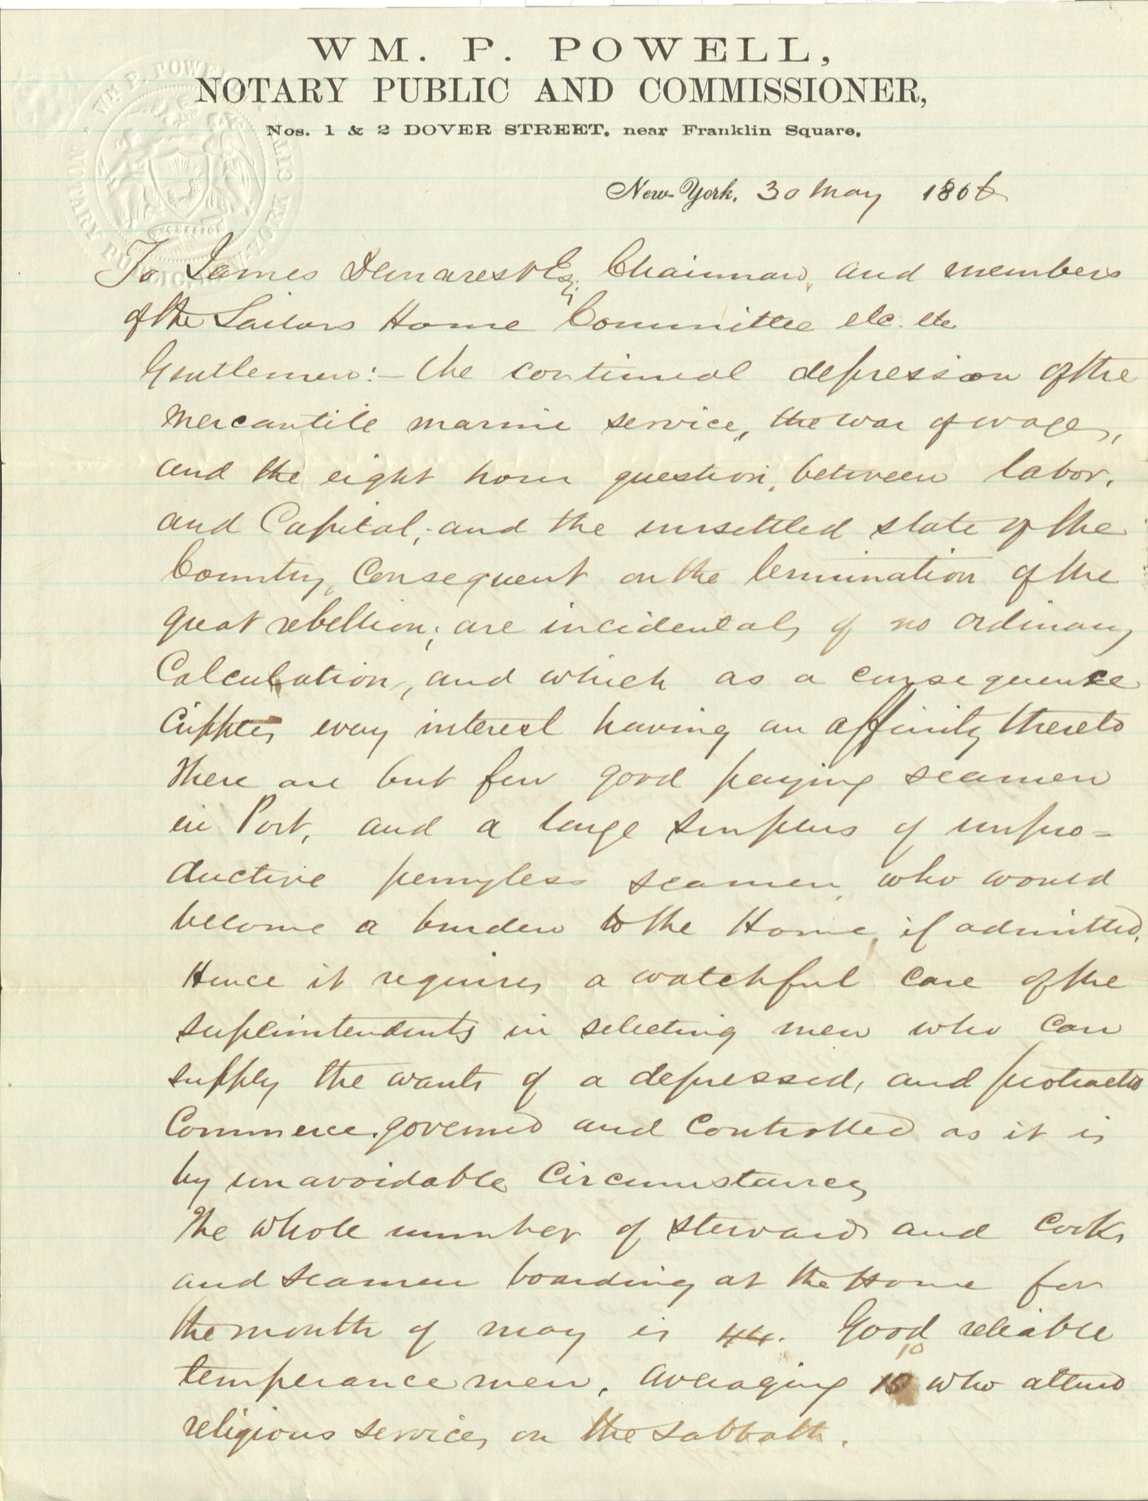 WM. P. POWELL,
NOTARY PUBLIC AND COMMISSIONER,
Nos. 1 & 2 DOVER STREET, near Franklin Square.
New-York, 30 May 1866
To James Demarest Esq Chairman, and members
of the Sailors Home Committee etc. etc
Gentlemen:- The continual depression of the
mercantile marine service, the war of wages,
and the eight hour question, between labor,
and Capital; and the unsettled state of the
Country, consequent on the termination of the
great rebellion; are incidentals of no ordinary
Calculation, and which as a consequence
cripples every interest having an affinity thereto
There are but few good paying seamen
in Port, and a large surplus of unpro-
ductive pennyless seamen, who would
become a burden to the Home, if admitted.
Hence it requires a watchful care of the
superintendents in selecting men who can
supply the wants of a depressed, and protracted
Commerce, governed and controlled as it is
by unavoidable circumstances
The whole number of stewards and cooks
and seamen boarding at the Home for
the month of May is 44. Good reliable
temperance men, averaging 10 who attend
religious services on the sabbath.